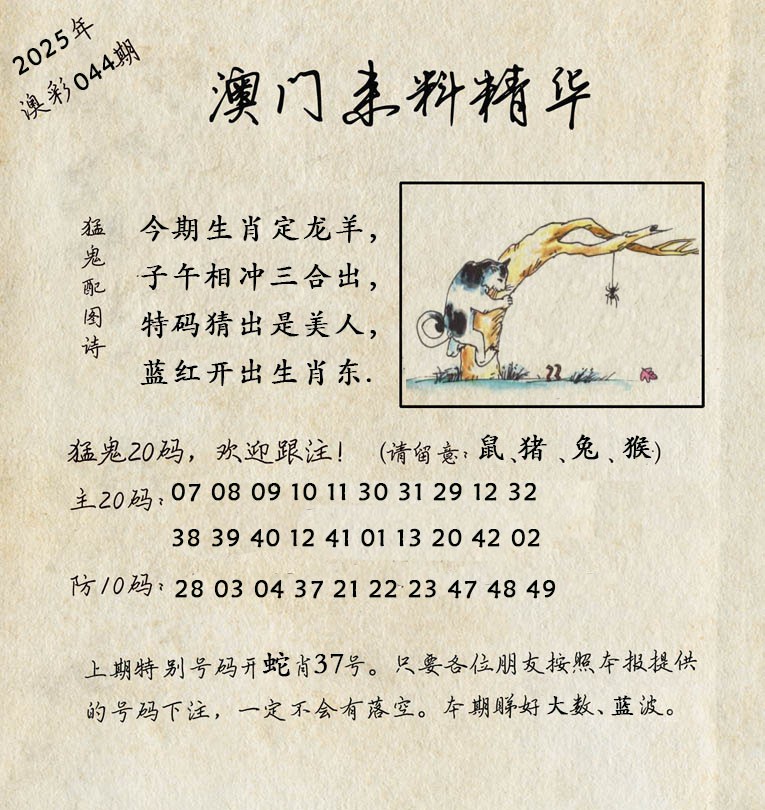 2025年
澳彩044期
澳门来料精华
猛鬼配图诗
今期生肖定龙羊，
子午相冲三合出，
特码猜出是美人，
蓝红开出生肖东.
猛鬼20码，欢迎跟注！（请留意：鼠、猪、兔、猴）
主20码：07 08 09 10 11 30 31 29 12 32
38 39 40 12 41 01 13 20 42 02
防10码：28 03 04 37 21 22 23 47 48 49
上期特别号码开蛇肖37号。只要各位朋友按照本报提供
的号码下注，一定不会有落空。本期睇好大数、蓝波。